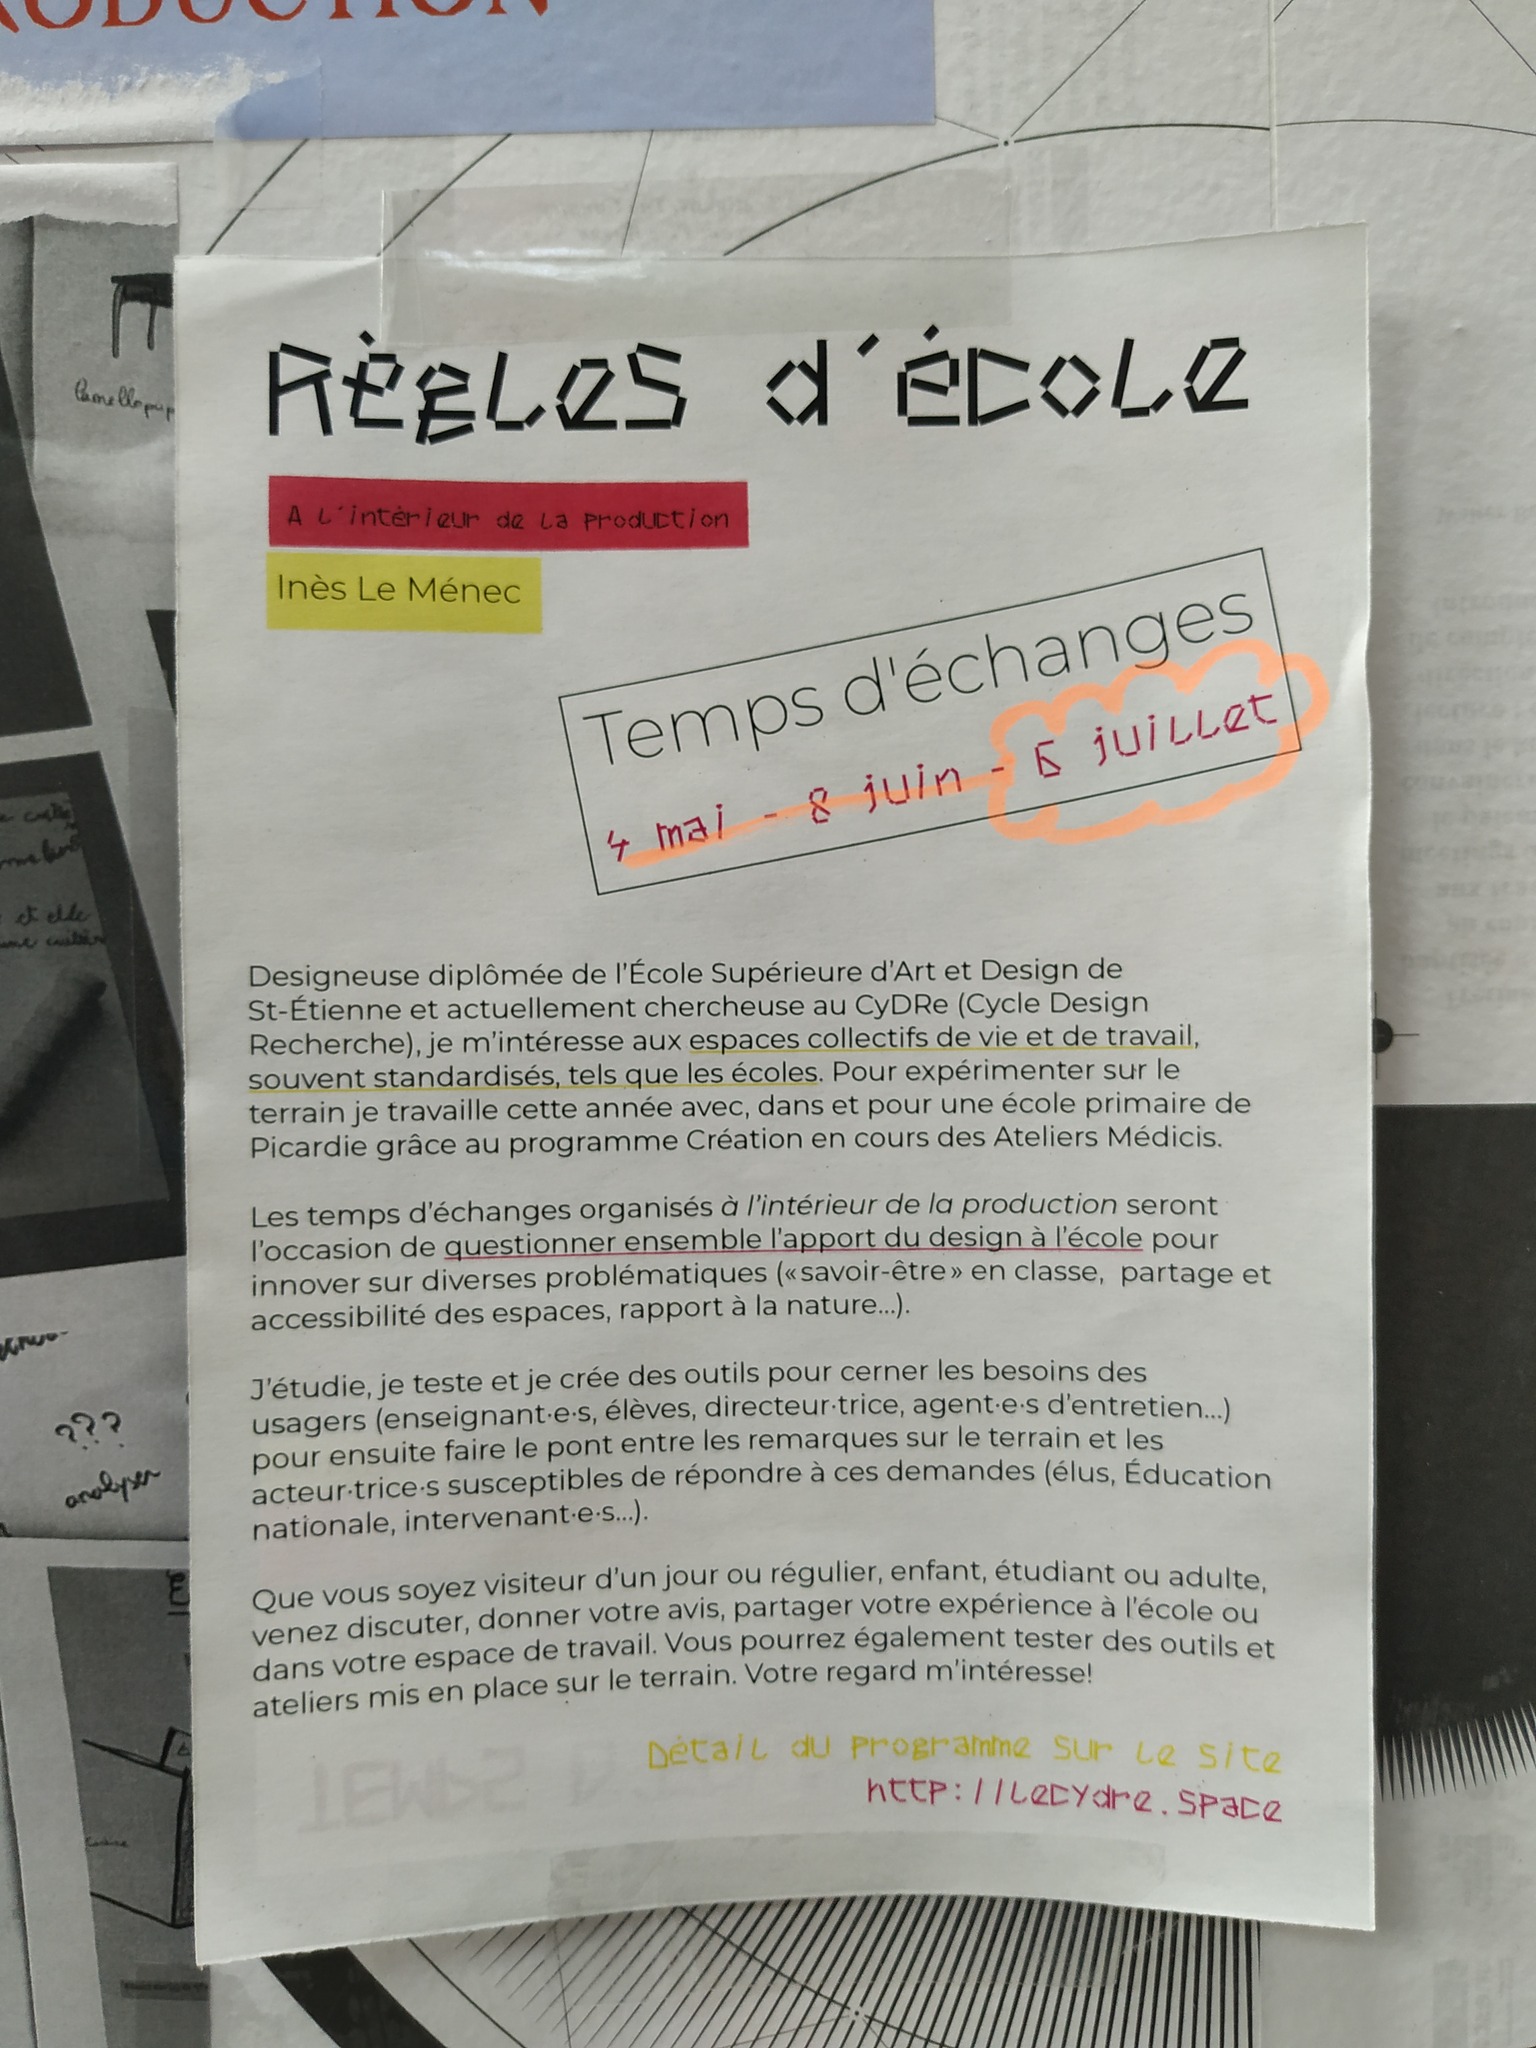 RODUCTION
Règles d'école
A l'intérieur de la production
Inès Le Ménec
Temps d'échanges
4 mai - 8 juin - 6 juillet
Designeuse diplômée de l'École Supérieure d'Art et Design de
St-Étienne et actuellement chercheuse au CyDRe (Cycle Design
Recherche), je m'intéresse aux espaces collectifs de vie et de travail,
souvent standardisés, tels que les écoles. Pour expérimenter sur le
terrain je travaille cette année avec, dans et pour une école primaire de
Picardie grâce au programme Création en cours des Ateliers Médicis.
Les temps d'échanges organisés à l'intérieur de la production seront
l'occasion de questionner ensemble l'apport du design à l'école pour
innover sur diverses problématiques («savoir-être» en classe, partage et
accessibilité des espaces, rapport à la nature...).
J'étudie, je teste et je crée des outils pour cerner les besoins des
usagers (enseignant·e·s, élèves, directeur·trice, agent·e·s d'entretien...)
pour ensuite faire le pont entre les remarques sur le terrain et les
acteur·trice·s susceptibles de répondre à ces demandes (élus, Éducation
nationale, intervenant·e·s...).
Que vous soyez visiteur d'un jour ou régulier, enfant, étudiant ou adulte,
venez discuter, donner votre avis, partager votre expérience à l'école ou
dans votre espace de travail. Vous pourrez également tester des outils et
ateliers mis en place sur le terrain. Votre regard m'intéresse!
Détail du programme sur le site
http://lecydre.space
???
analyser